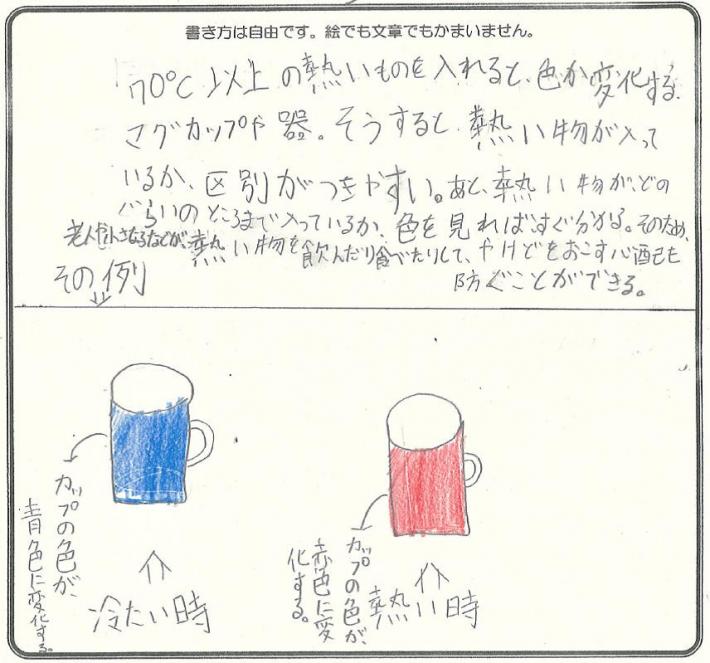 書き方は自由です。絵でも文章でもかまいません。
70℃以上の熱いものを入れると、色が変化する、
マグカップや器。そうすると、熱い物が入って
いるか、区別がつきやすい。あと、熱い物が、どの
ぐらいのところまで入っているか、色を見ればすぐ分かる。そのため、
老人や小さな子などが、熱い物を飲んだり食べたりして、やけどをおこす心配も
防ぐことができる。
その例
カップの色が、
青色に変化する。
冷たい時
カップの色が、
赤色に変
化する。
熱い時